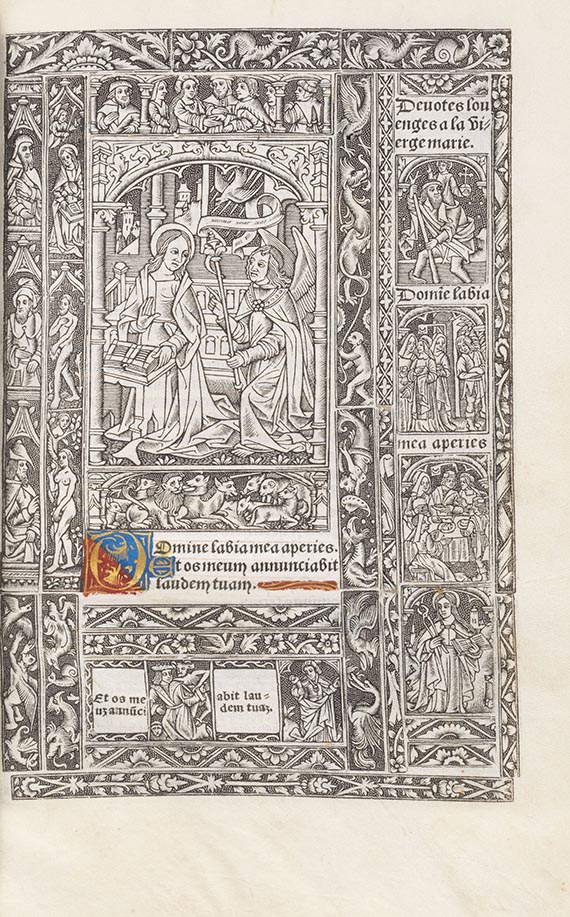 Devotes lou
enges a la Vi-
erge marie.
Domie labia
mea aperies
Domine labia mea aperies.
Et os meum annunciabit
laudem tuam.
Et os me
uz annūci
abit lau-
dem tuaz.